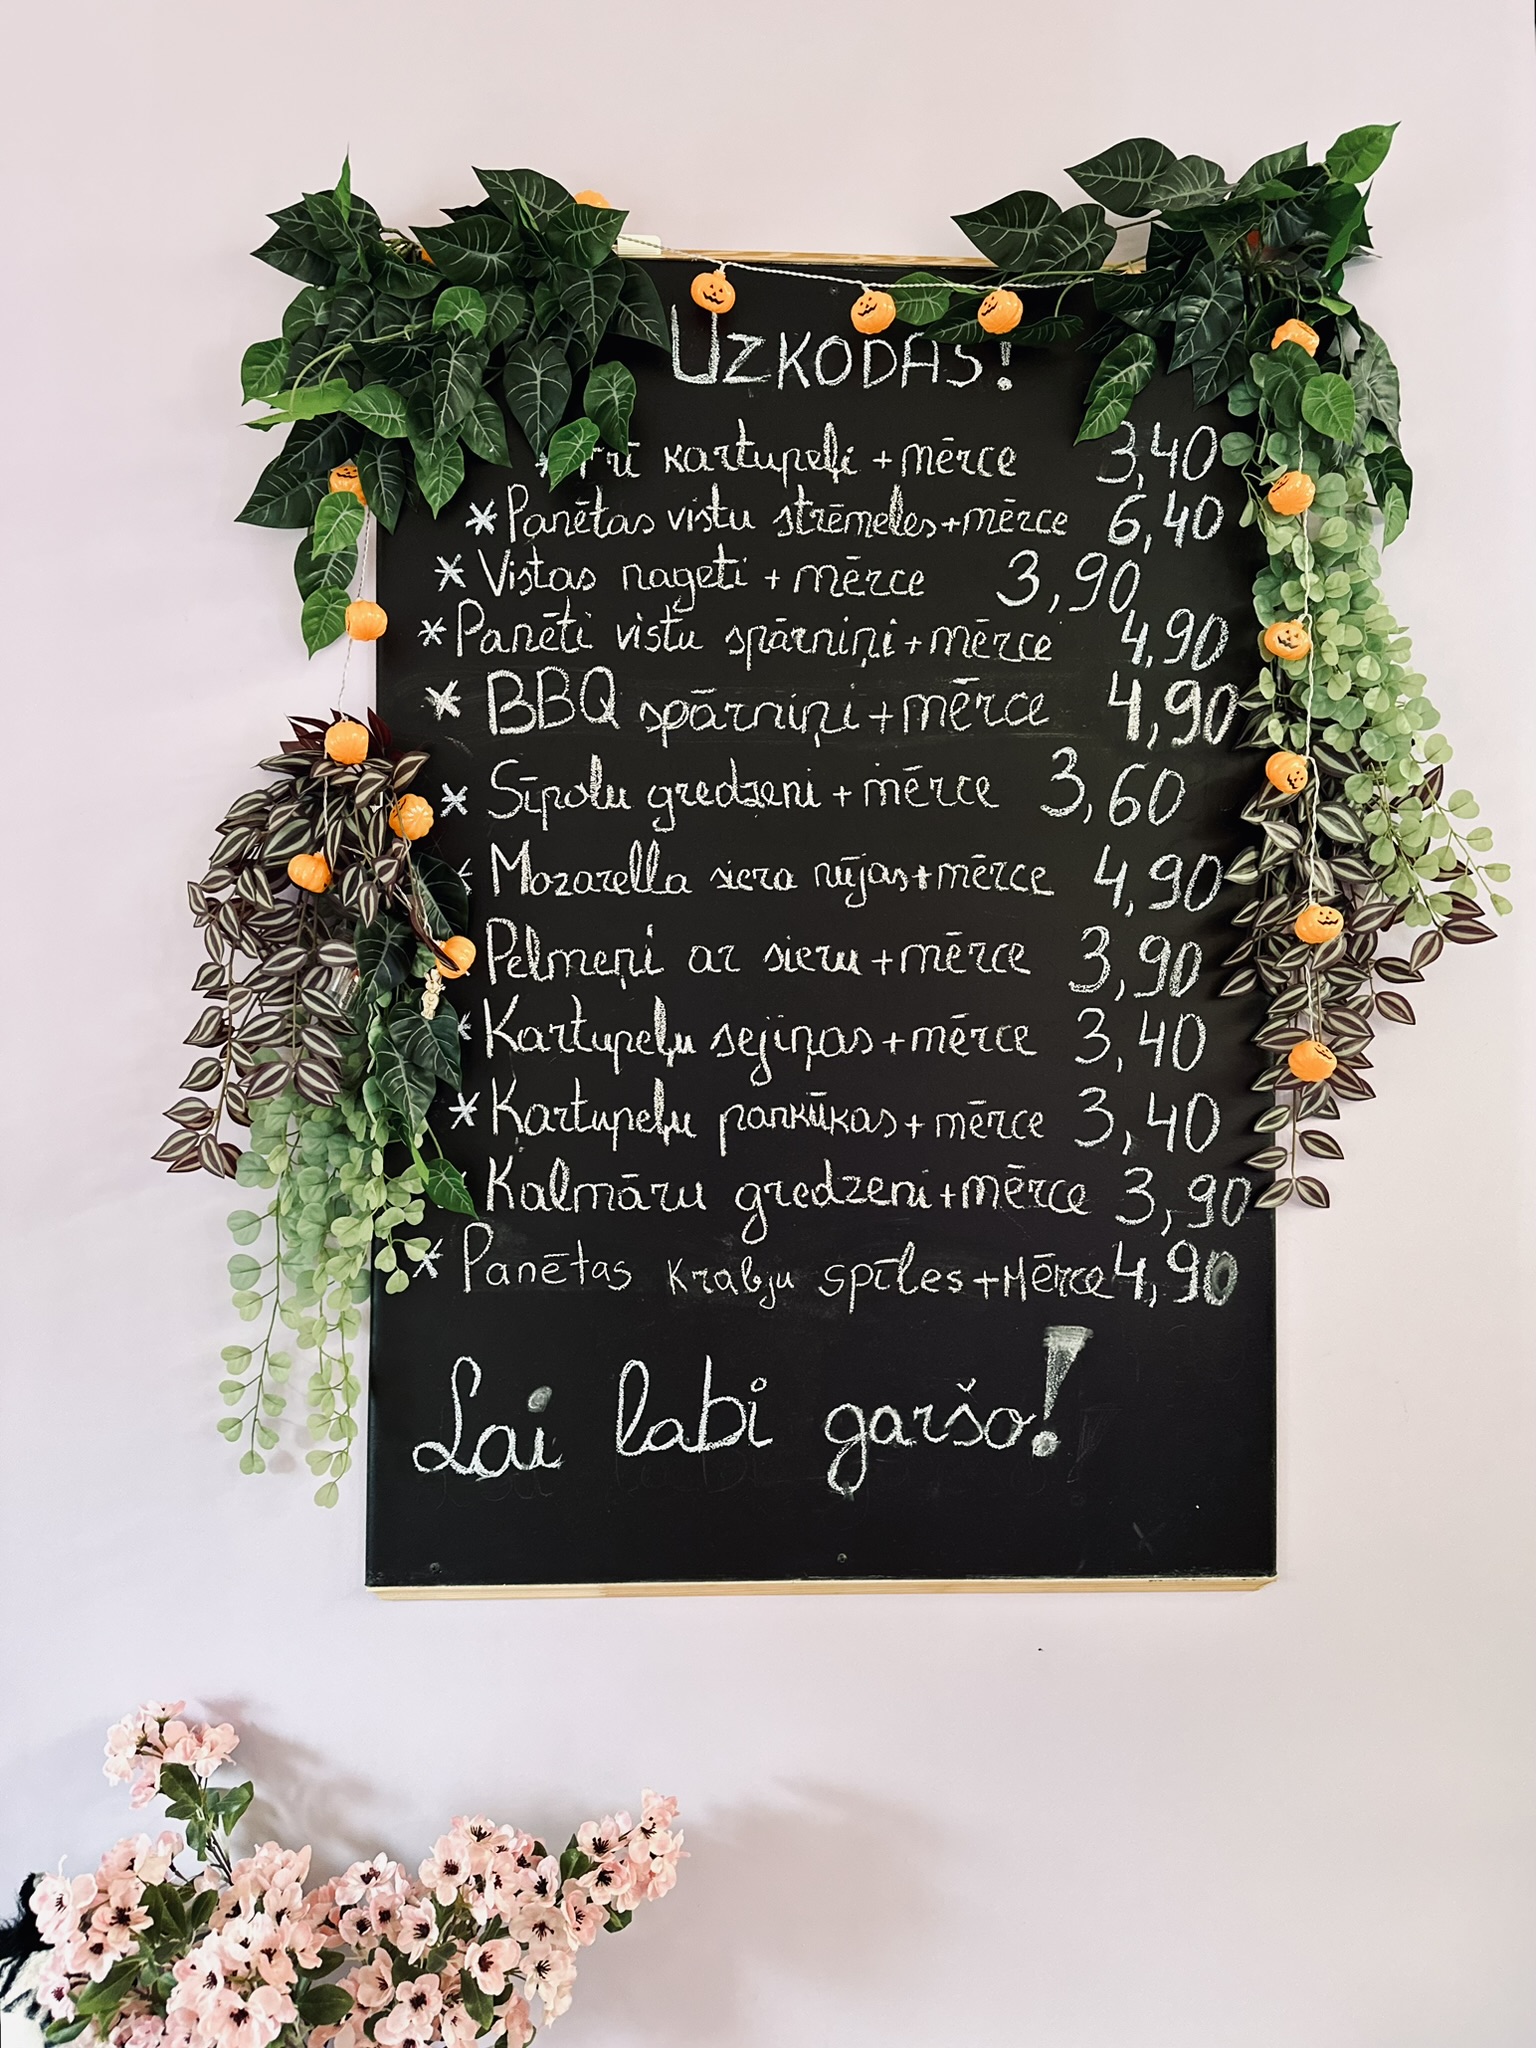 UZKODAS!
* Frī kartupeļi + mērce 3,40
* Panētas vistu strēmeles + mērce 6,40
* Vistas nageti + mērce 3,90
* Panēti vistu spārniņi + mērce 4,90
* BBQ spārniņi + mērce 4,90
* Sīpolu gredzeni + mērce 3,60
* Mozarella siera nūjas + mērce 4,90
Pelmeņi ar sieru + mērce 3,90
* Kartupeļu sejiņas + mērce 3,40
* Kartupeļu pankūkas + mērce 3,40
* Kalmāru gredzeni + mērce 3,90
* Panētas krabju spīles + Mērce 4,90
Lai labi garšo!